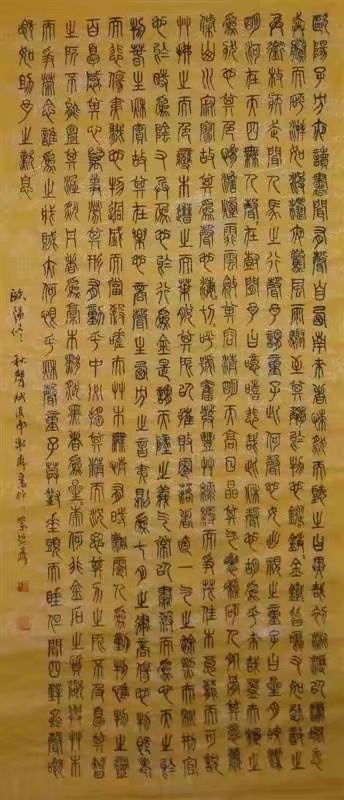 歐陽子方夜讀書聞有聲自西南來者悚然而聽之曰異哉初淅瀝以蕭颯忽
奔騰而砰湃如波濤夜驚風雨驟至其觸於物也鏦鏦錚錚金鐵皆鳴又如赴敵之
兵銜枚疾走不聞號令但聞人馬之行聲予謂童子此何聲也汝出視之童子曰星月皎潔
明河在天四無人聲聲在樹間予曰噫嘻悲哉此秋聲也胡爲乎來哉蓋夫秋之
爲狀也其色慘淡煙霏雲斂其容清明天高日晶其氣慄冽砭人肌骨其意蕭
條山川寂寥故其爲聲也淒淒切切呼號奮發豐草綠縟而爭茂佳木蔥蘢而可悅
草拂之而色變木遭之而葉脫其所以摧敗零落者乃一氣之餘烈夫秋刑官
也於時爲陰又兵象也於行爲金是謂天地之義氣常以肅殺而爲心天之於
物春生秋實故其在樂也商聲主西方之音夷則爲七月之律商傷也物既老
而悲傷夷戮也物過盛而當殺嗟乎草木無情有時飄零人爲動物惟物之靈
百憂感其心萬事勞其形有動乎中必搖其精而況思其力之所不及憂其智
之所不能宜其渥然丹者爲槁木黟然黑者爲星星奈何非金石之質欲與草木
而爭榮念誰爲之戕賊亦何恨乎秋聲童子莫對垂頭而睡但聞四壁蟲聲唧
唧如助予之歎息
歐陽修秋聲賦